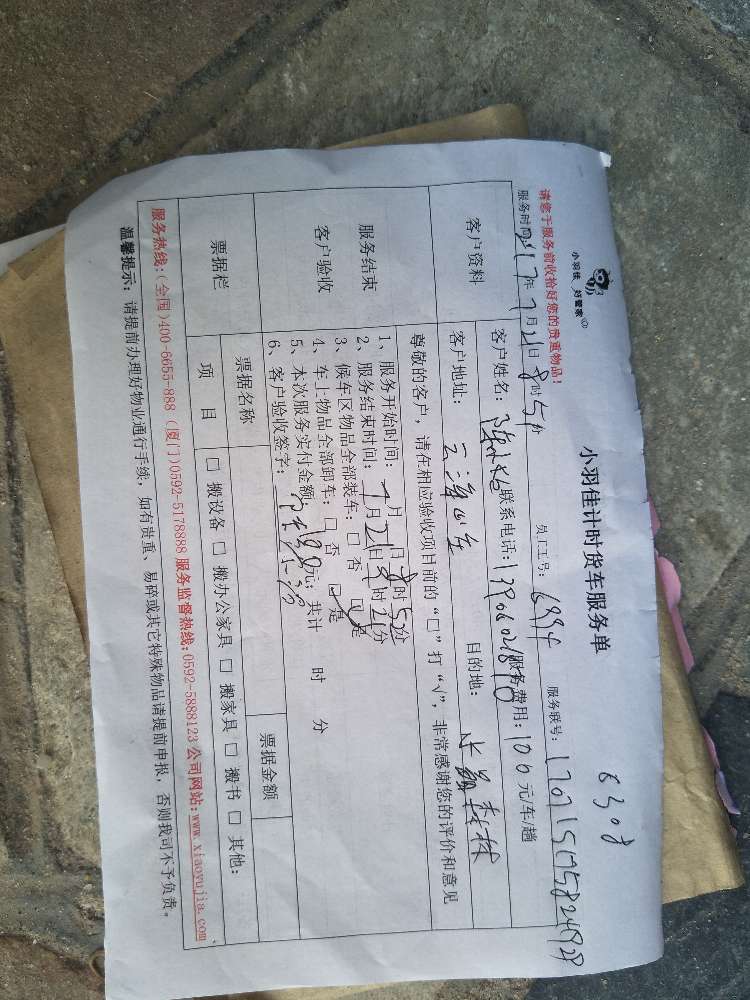 小羽佳
好管家®
小羽佳计时货车服务单
8308
请您于服务前收拾好您的贵重物品！
服务时间：2017年7月21日8时51分 员工工号：6994 服务联号：
客户资料
客户姓名： 联系电话： 服务费用：100元/车/趟
客户地址： 云海山庄 目的地：
尊敬的客户，请在相应验收项目前的“□”打“√”，非常感谢您的评价和意见
服务结束
客户验收
1、服务开始时间： 月 日8时51分
2、服务结束时间：7月21日9时21分
3、候车区物品全部装车：□ 否 ☑是
4、车上物品全部卸车：□ 否 ☑是
5、本次服务实付金额： 元；共计 时 分
6、客户验收签字：
票据栏
票据名称 票据金额
项 目 □ 搬设备 □ 搬办公家具 □ 搬家具 □ 搬书 □ 其他：
服务热线：(全国)400-6655-888 (厦门)0592-5178888 服务监督热线：0592-5888123 公司网站：www.xiaoyujia.com
温馨提示：请提前办理好物业通行手续，如有贵重、易碎或其它特殊物品请提前申报，否则我司不予负责。